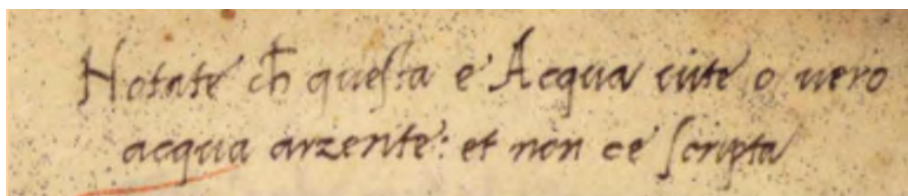 Notate ch questa e' Acqua uite o uero
acqua arzente: et non ce scripta